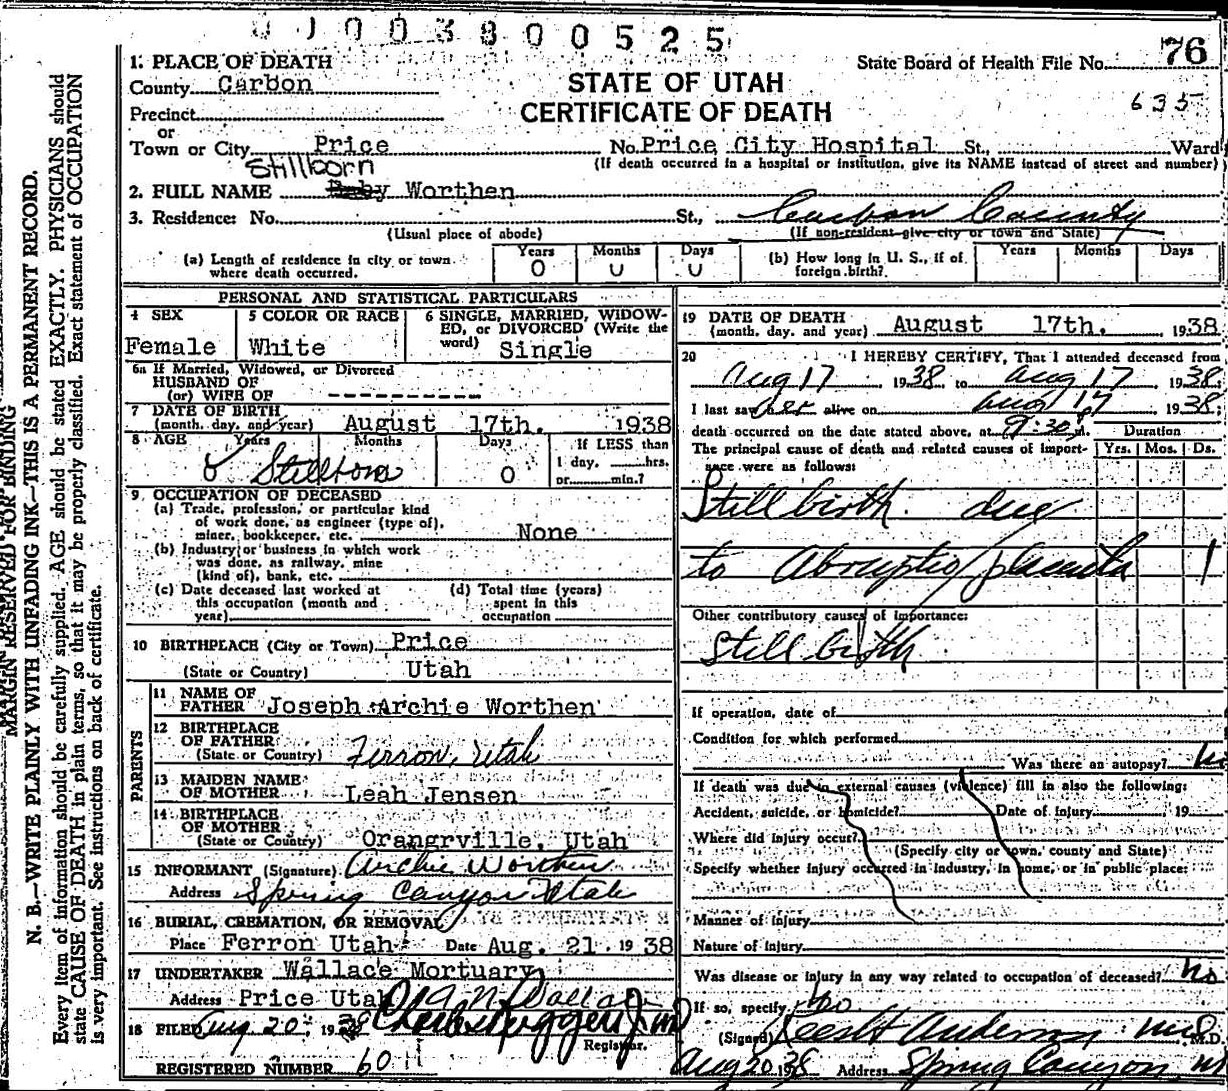 0 0 0 3 8 0 0 5 2 5
76
State Board of Health File No.
635
STATE OF UTAH
CERTIFICATE OF DEATH
1. PLACE OF DEATH
County Carbon
Precinct
or
Town or City Price No. Price City Hospital St., Ward
(If death occurred in a hospital or institution, give its NAME instead of street and number)
Stillborn
2. FULL NAME Baby Worthen
3. Residence: No. St., Carbon County
(Usual place of abode) (If non-resident give city or town and State)
(a) Length of residence in city or town where death occurred. Years 0 Months 0 Days 0
(b) How long in U. S., if of foreign birth? Years Months Days
PERSONAL AND STATISTICAL PARTICULARS
4 SEX Female
5 COLOR OR RACE White
6 SINGLE, MARRIED, WIDOWED, or DIVORCED (Write the word) Single
6a If Married, Widowed, or Divorced
HUSBAND OF
(or) WIFE OF ----------
7 DATE OF BIRTH
(month, day, and year) August 17th. 1938
8 AGE Years Months Days If LESS than
0 Stillborn 0 1 day, hrs.
or min.?
9 OCCUPATION OF DECEASED
(a) Trade, profession, or particular kind
of work done, as engineer (type of),
miner, bookkeeper, etc. None
(b) Industry or business in which work
was done, as railway, mine
(kind of), bank, etc.
(c) Date deceased last worked at
this occupation (month and
year)
(d) Total time (years)
spent in this
occupation
10 BIRTHPLACE (City or Town) Price
(State or Country) Utah
PARENTS
11 NAME OF
FATHER Joseph Archie Worthen
12 BIRTHPLACE
OF FATHER
(State or Country) Ferron, Utah
13 MAIDEN NAME
OF MOTHER Leah Jensen
14 BIRTHPLACE
OF MOTHER
(State or Country) Orangrville, Utah
15 INFORMANT (Signature) Archie Worthen
Address Spring Canyon Utah
16 BURIAL, CREMATION, OR REMOVAL
Place Ferron Utah Date Aug. 21 1938
17 UNDERTAKER Wallace Mortuary
Address Price Utah
18 FILED Aug 20 1938
Registrar.
REGISTERED NUMBER 60
19 DATE OF DEATH
(month, day, and year) August 17th. 1938
20 I HEREBY CERTIFY, That I attended deceased from
Aug 17 1938 to Aug 17 1938;
I last saw her alive on Aug 17 1938;
death occurred on the date stated above, at 9:30 m. Duration
The principal cause of death and related causes of importance were as follows: Yrs. Mos. Ds.
Stillbirth due
to Abruptio placenta 1
Other contributory causes of importance:
Still birth
If operation, date of
Condition for which performed
Was there an autopsy? no
If death was due to external causes (violence) fill in also the following:
Accident, suicide, or homicide? Date of injury 19
Where did injury occur?
(Specify city or town, county and State)
Specify whether injury occurred in industry, in home, or in public place:
Manner of injury
Nature of injury
Was disease or injury in any way related to occupation of deceased? no
If so, specify no
(Signed) Anderson M.D.
Aug 20 1938 Address Spring Canyon
MARGIN RESERVED FOR BINDING
N. B.—WRITE PLAINLY WITH UNFADING INK—THIS IS A PERMANENT RECORD.
Every item of information should be carefully supplied. AGE should be stated EXACTLY. PHYSICIANS should
state CAUSE OF DEATH in plain terms, so that it may be properly classified. Exact statement of OCCUPATION
is very important. See instructions on back of certificate.